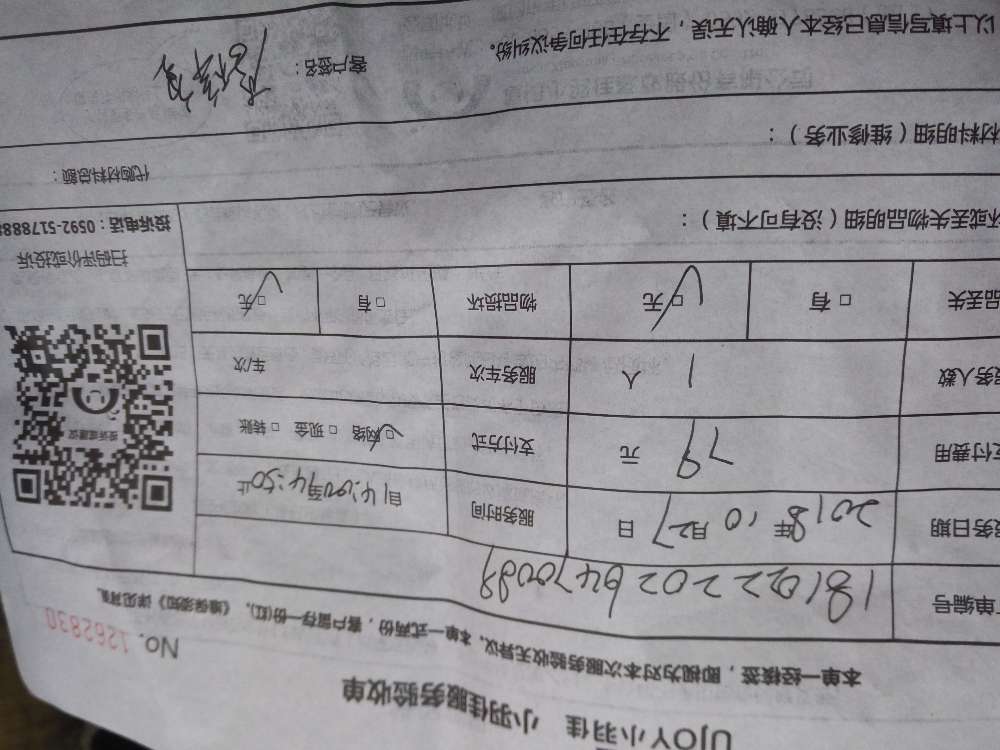 UJOY小羽佳 小羽佳服务验收单
No. 1262830
本单一经核签,即视为对本次服务验收无异议,本单一式两份,客户留存一份(红),《维保须知》详见背面
单编号 1810222026470089
务日期 2018年10月27日 服务时间 自14:00至14:50止
支付费用 79元 支付方式 □网络 □现金 □转账
服务人数 1人 服务车次 车/次
品丢失 □有 □无 物品损坏 □有 □无
投诉或建议
扫码评价或投诉
投诉电话:0592-5178888
坏或丢失物品明细(没有可不填):
代购材料总额:
材料明细(维修业务):
以上填写信息已经本人确认无误,不存在任何争议纠纷。
客户签名: